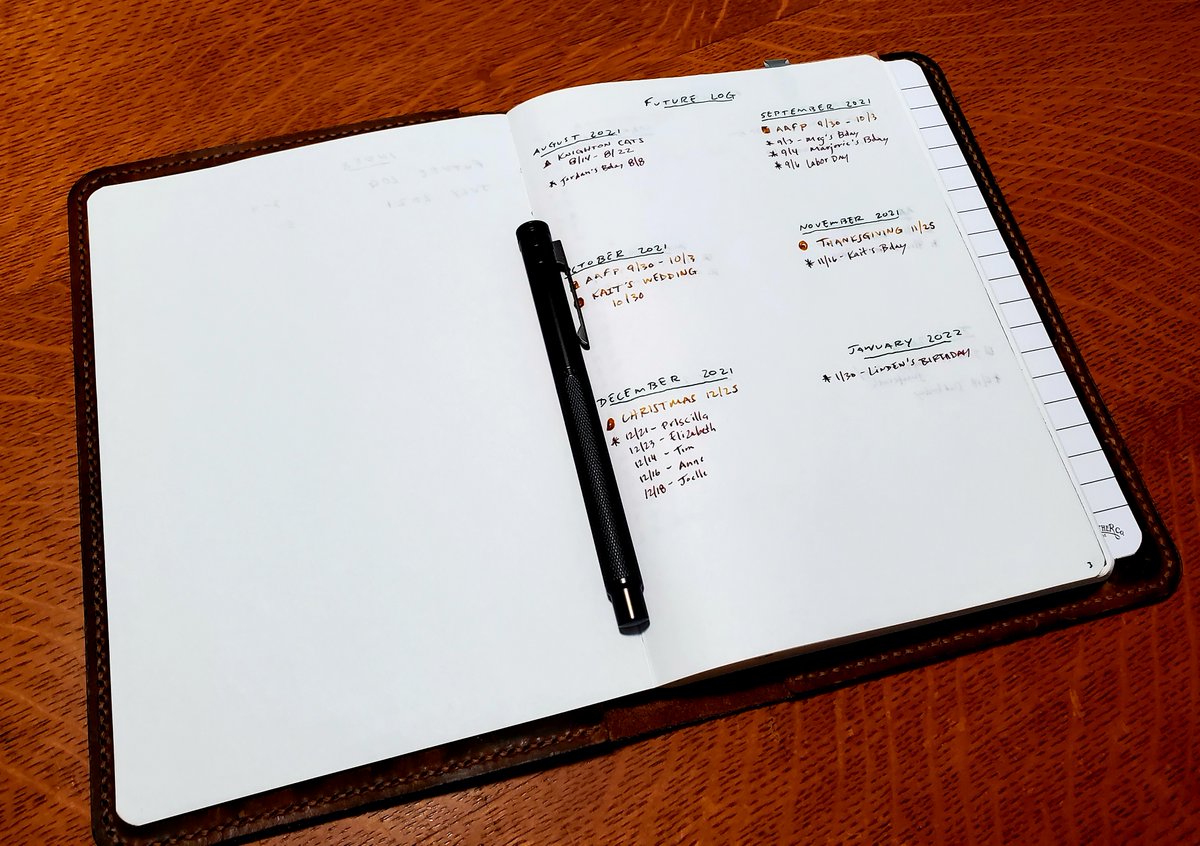 FUTURE LOG
AUGUST 2021
KNIGHTON CATS
8/14 - 8/22
* Jordan's Bday 8/8
SEPTEMBER 2021
AAFP 9/30 - 10/3
* 9/3 - Meg's Bday
* 9/4 Marjorie's Bday
* 9/6 Labor Day
OCTOBER 2021
AAFP 9/30 - 10/3
KAIT'S WEDDING
10/30
NOVEMBER 2021
THANKSGIVING 11/25
* 11/16 - Kait's Bday
DECEMBER 2021
CHRISTMAS 12/25
* 12/21 - Priscilla
12/23 - Elizabeth
12/14 - Tim
12/16 - Anne
12/18 - Joelle
JANUARY 2022
* 1/30 - LINDEN'S BIRTHDAY
3